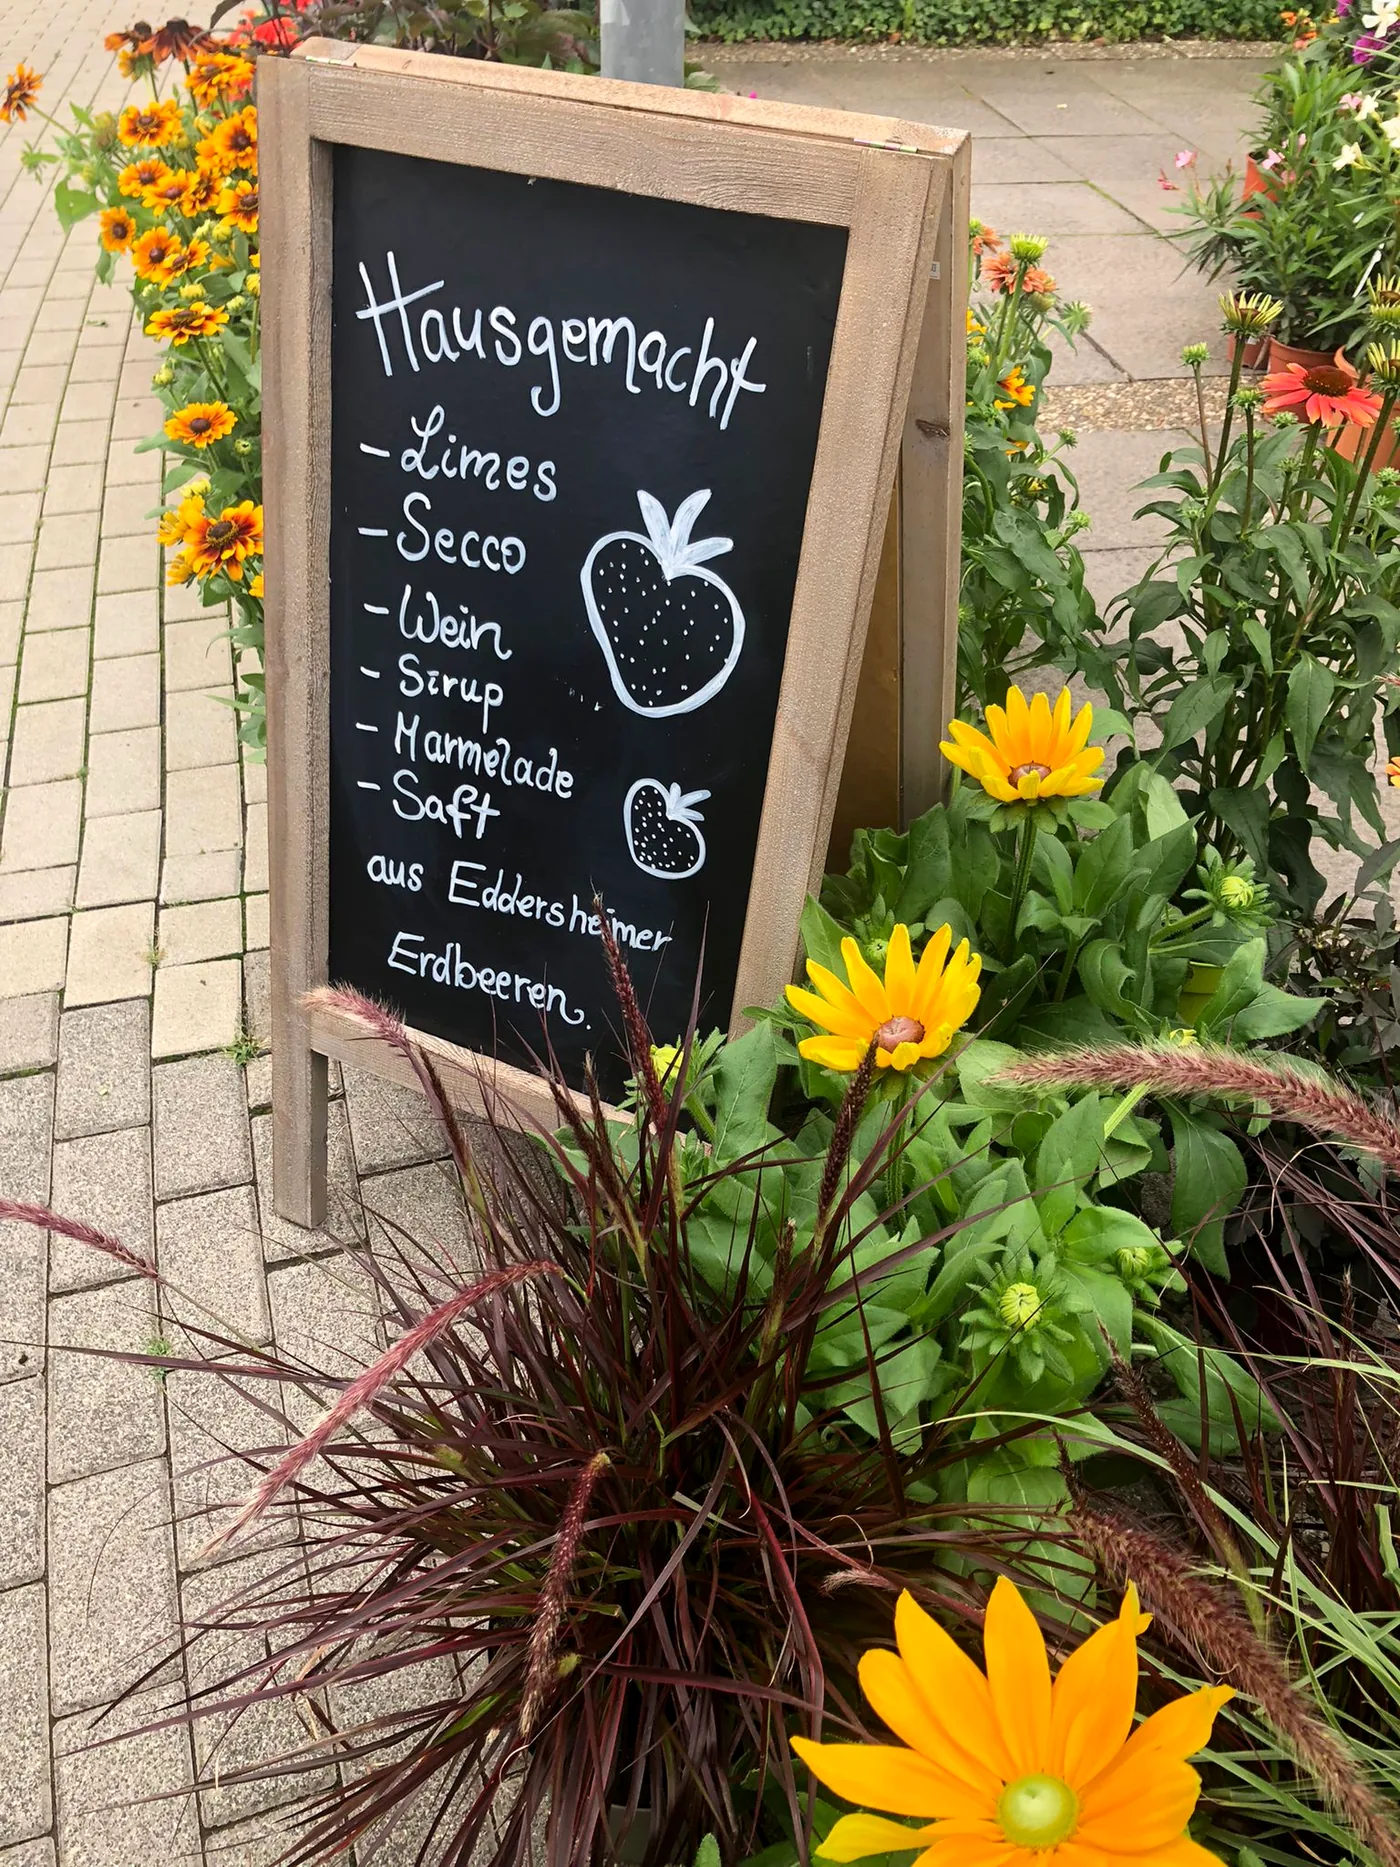 Hausgemacht
- Limes
- Secco
- Wein
- Sirup
- Marmelade
- Saft
aus Eddersheimer
Erdbeeren.